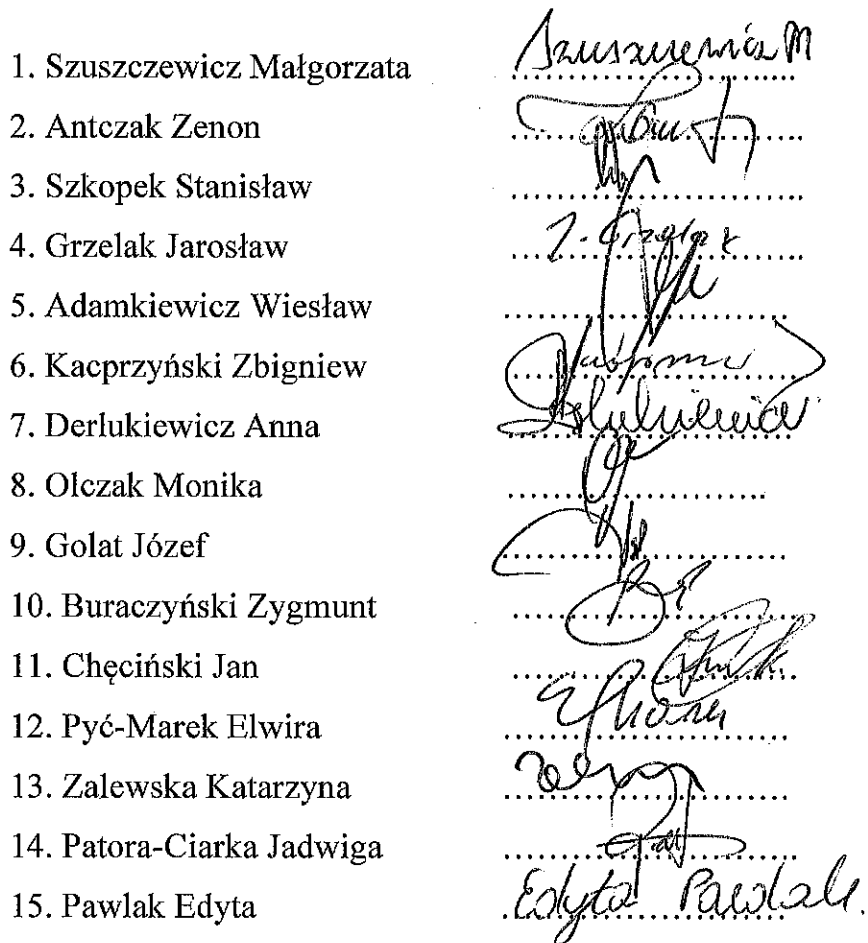 1. Szuszczewicz Małgorzata Szuszczewicz M
2. Antczak Zenon
3. Szkopek Stanisław
4. Grzelak Jarosław J. Grzelak
5. Adamkiewicz Wiesław
6. Kacprzyński Zbigniew
7. Derlukiewicz Anna Derlukiewicz
8. Olczak Monika
9. Golat Józef
10. Buraczyński Zygmunt
11. Chęciński Jan
12. Pyć-Marek Elwira
13. Zalewska Katarzyna
14. Patora-Ciarka Jadwiga
15. Pawlak Edyta Edyta Pawlak